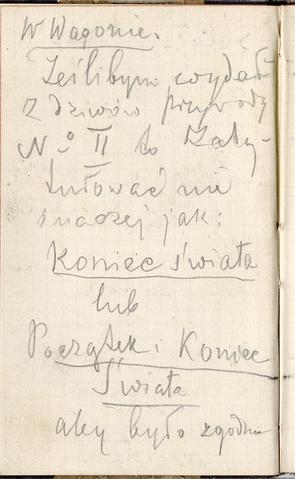 W Wagonie.
Jeślibym wydał
z dziwów przyrody
No II to Zaty-
tułować nie
inaczej jak:
Koniec świata
lub
Początek i Koniec
Świata
aby było zgodne